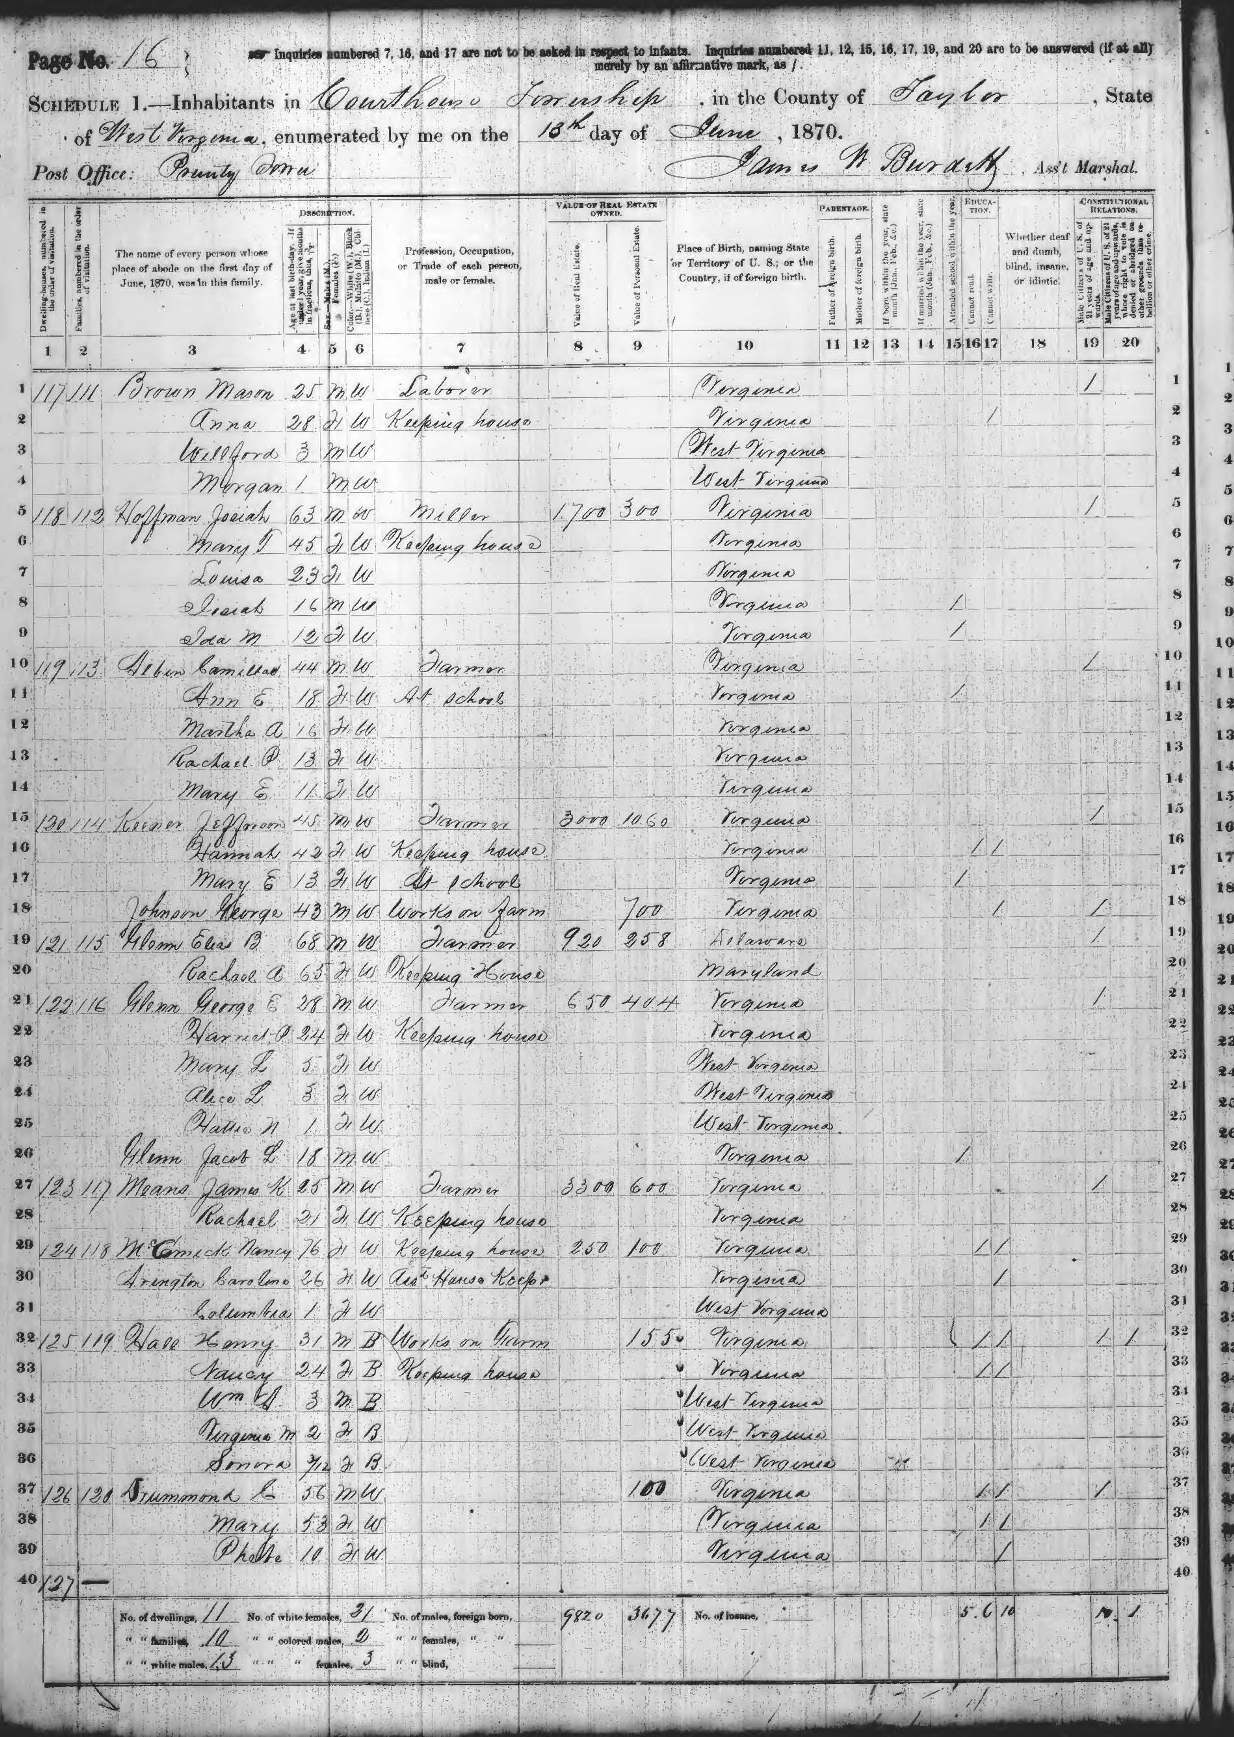 Page No. 16
Inquiries numbered 7, 16, and 17 are not to be asked in respect to infants. Inquiries numbered 11, 12, 15, 16, 17, 19, and 20 are to be answered (if at all)
merely by an affirmative mark, as /.
SCHEDULE 1.—Inhabitants in Courthouse Township, in the County of Taylor, State
of West Virginia, enumerated by me on the 13th day of June, 1870.
Post Office: Prunty Town James W Burdett, Ass't Marshal.
Dwelling-houses, numbered in the order of visitation.
Families, numbered in the order of visitation.
The name of every person whose place of abode on the first day of June, 1870, was in this family.
DESCRIPTION.
Age at last birth-day. If under 1 year, give months in fractions, thus, 3/12
Sex.—Males (M.), Females (F.)
Color.—White (W.), Black (B.), Mulatto (M.), Chinese (C.), Indian (I.)
Profession, Occupation, or Trade of each person, male or female.
VALUE OF REAL ESTATE OWNED.
Value of Real Estate.
Value of Personal Estate.
Place of Birth, naming State or Territory of U. S.; or the Country, if of foreign birth.
PARENTAGE.
Father of foreign birth.
Mother of foreign birth.
If born within the year, state month (Jan., Feb., &c.)
If married within the year, state month (Jan., Feb., &c.)
EDUCATION.
Attended school within the year.
Cannot read.
Cannot write.
Whether deaf and dumb, blind, insane, or idiotic.
CONSTITUTIONAL RELATIONS.
Male Citizens of U. S. of 21 years of age and upwards.
Male Citizens of U. S. of 21 years of age and upwards, where right to vote is denied or abridged on other grounds than rebellion or other crime.
1 2 3 4 5 6 7 8 9 10 11 12 13 14 15 16 17 18 19 20
1 117 111 Brown Mason 25 M W Laborer Virginia / 1
2 Anna 28 F W Keeping house Virginia / 2
3 Willford 3 M W West Virginia 3
4 Morgan 1 M W West Virginia 4
5 118 112 Hoffman Josiah 63 M W Miller 1700 300 Virginia / 5
6 Mary T 45 F W Keeping house Virginia 6
7 Louisa 23 F W Virginia 7
8 Isiah 16 M W Virginia / 8
9 Ida M 12 F W Virginia / 9
10 119 113 44 M W Farmer Virginia / 10
11 Ann E 18 F W At school Virginia / 11
12 Martha A 16 F W Virginia 12
13 Rachael P 13 F W Virginia 13
14 Mary E 11 F W Virginia 14
15 120 114 Keener Jefferson 45 M W Farmer 3000 1060 Virginia / 15
16 Hannah 42 F W Keeping house Virginia / / 16
17 Mary E 13 F W At school Virginia / 17
18 Johnson George 43 M W Works on farm 700 Virginia / / 18
19 121 115 Glenn Elias B 68 M W Farmer 920 258 Delaware / 19
20 Rachael A 65 F W Keeping House Maryland 20
21 122 116 Glenn George E 28 M W Farmer 650 404 Virginia / 21
22 Harriet P 24 F W Keeping house Virginia 22
23 Mary L 5 F W West Virginia 23
24 Alice L 3 F W West Virginia 24
25 Hattie N 1 F W West Virginia 25
26 Glenn Jacob L 18 M W Virginia / 26
27 123 117 Means James K 25 M W Farmer 3300 600 Virginia / 27
28 Rachael 21 F W Keeping house Virginia 28
29 124 118 Nancy 76 F W Keeping house 250 100 Virginia / / 29
30 Arington Caroline 26 F W Asst House Keeper Virginia / 30
31 Columbia 1 F W West Virginia 31
32 125 119 Hall Henry 31 M B Works on Farm 155 Virginia / / / / 32
33 Nancy 24 F B Keeping house Virginia / / 33
34 Wm A. 3 M B West Virginia 34
35 Virginia M 2 F B West Virginia 35
36 Sonora F B West Virginia 36
37 126 120 Drummond C 56 M W 100 Virginia / / / 37
38 Mary 53 F W Virginia / / 38
39 Phebe 10 F W Virginia / 39
40 127 — 40
No. of dwellings, 11 No. of white females, 21 No. of males, foreign born, 9820 3677 No. of insane, 5 6 10 10 1
" " families, 10 " " colored males, 2 " " females, " "
" " white males, 13 " " " females, 3 " " blind,